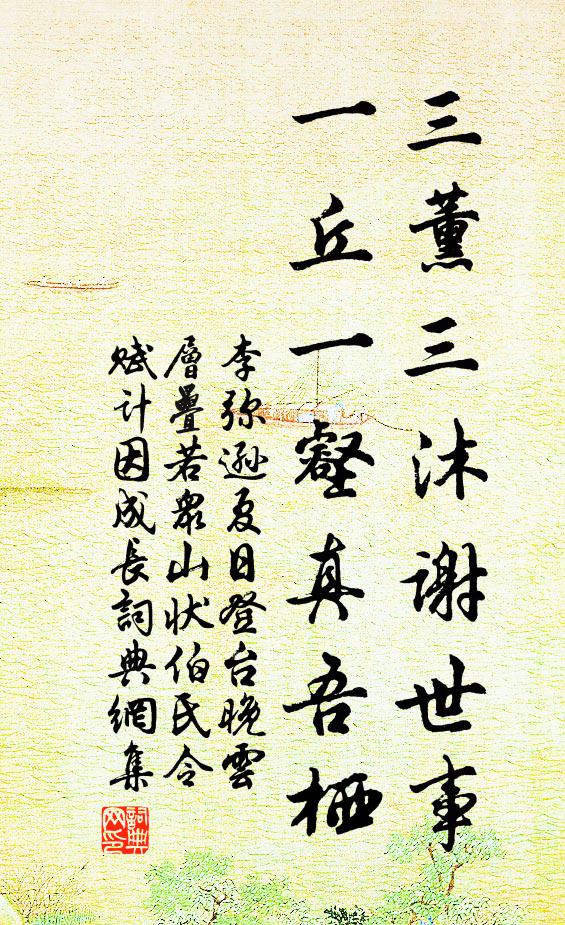 三薰三沐谢世事
一丘一壑真吾栖
李弥逊夏日登台晚雲
層疊若衆山状伯氏令
赋计因成長詞典網集
詞典
网印